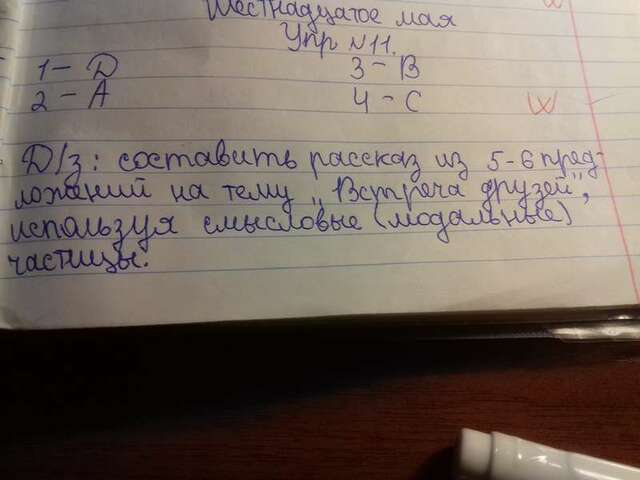 Шестнадцатое мая
Упр. №11.
1 – D 3 – B
2 – A 4 – C
Д/з: составить рассказ из 5-6 пред-
ложений на тему „Встреча друзей",
используя смысловые (модальные)
частицы.